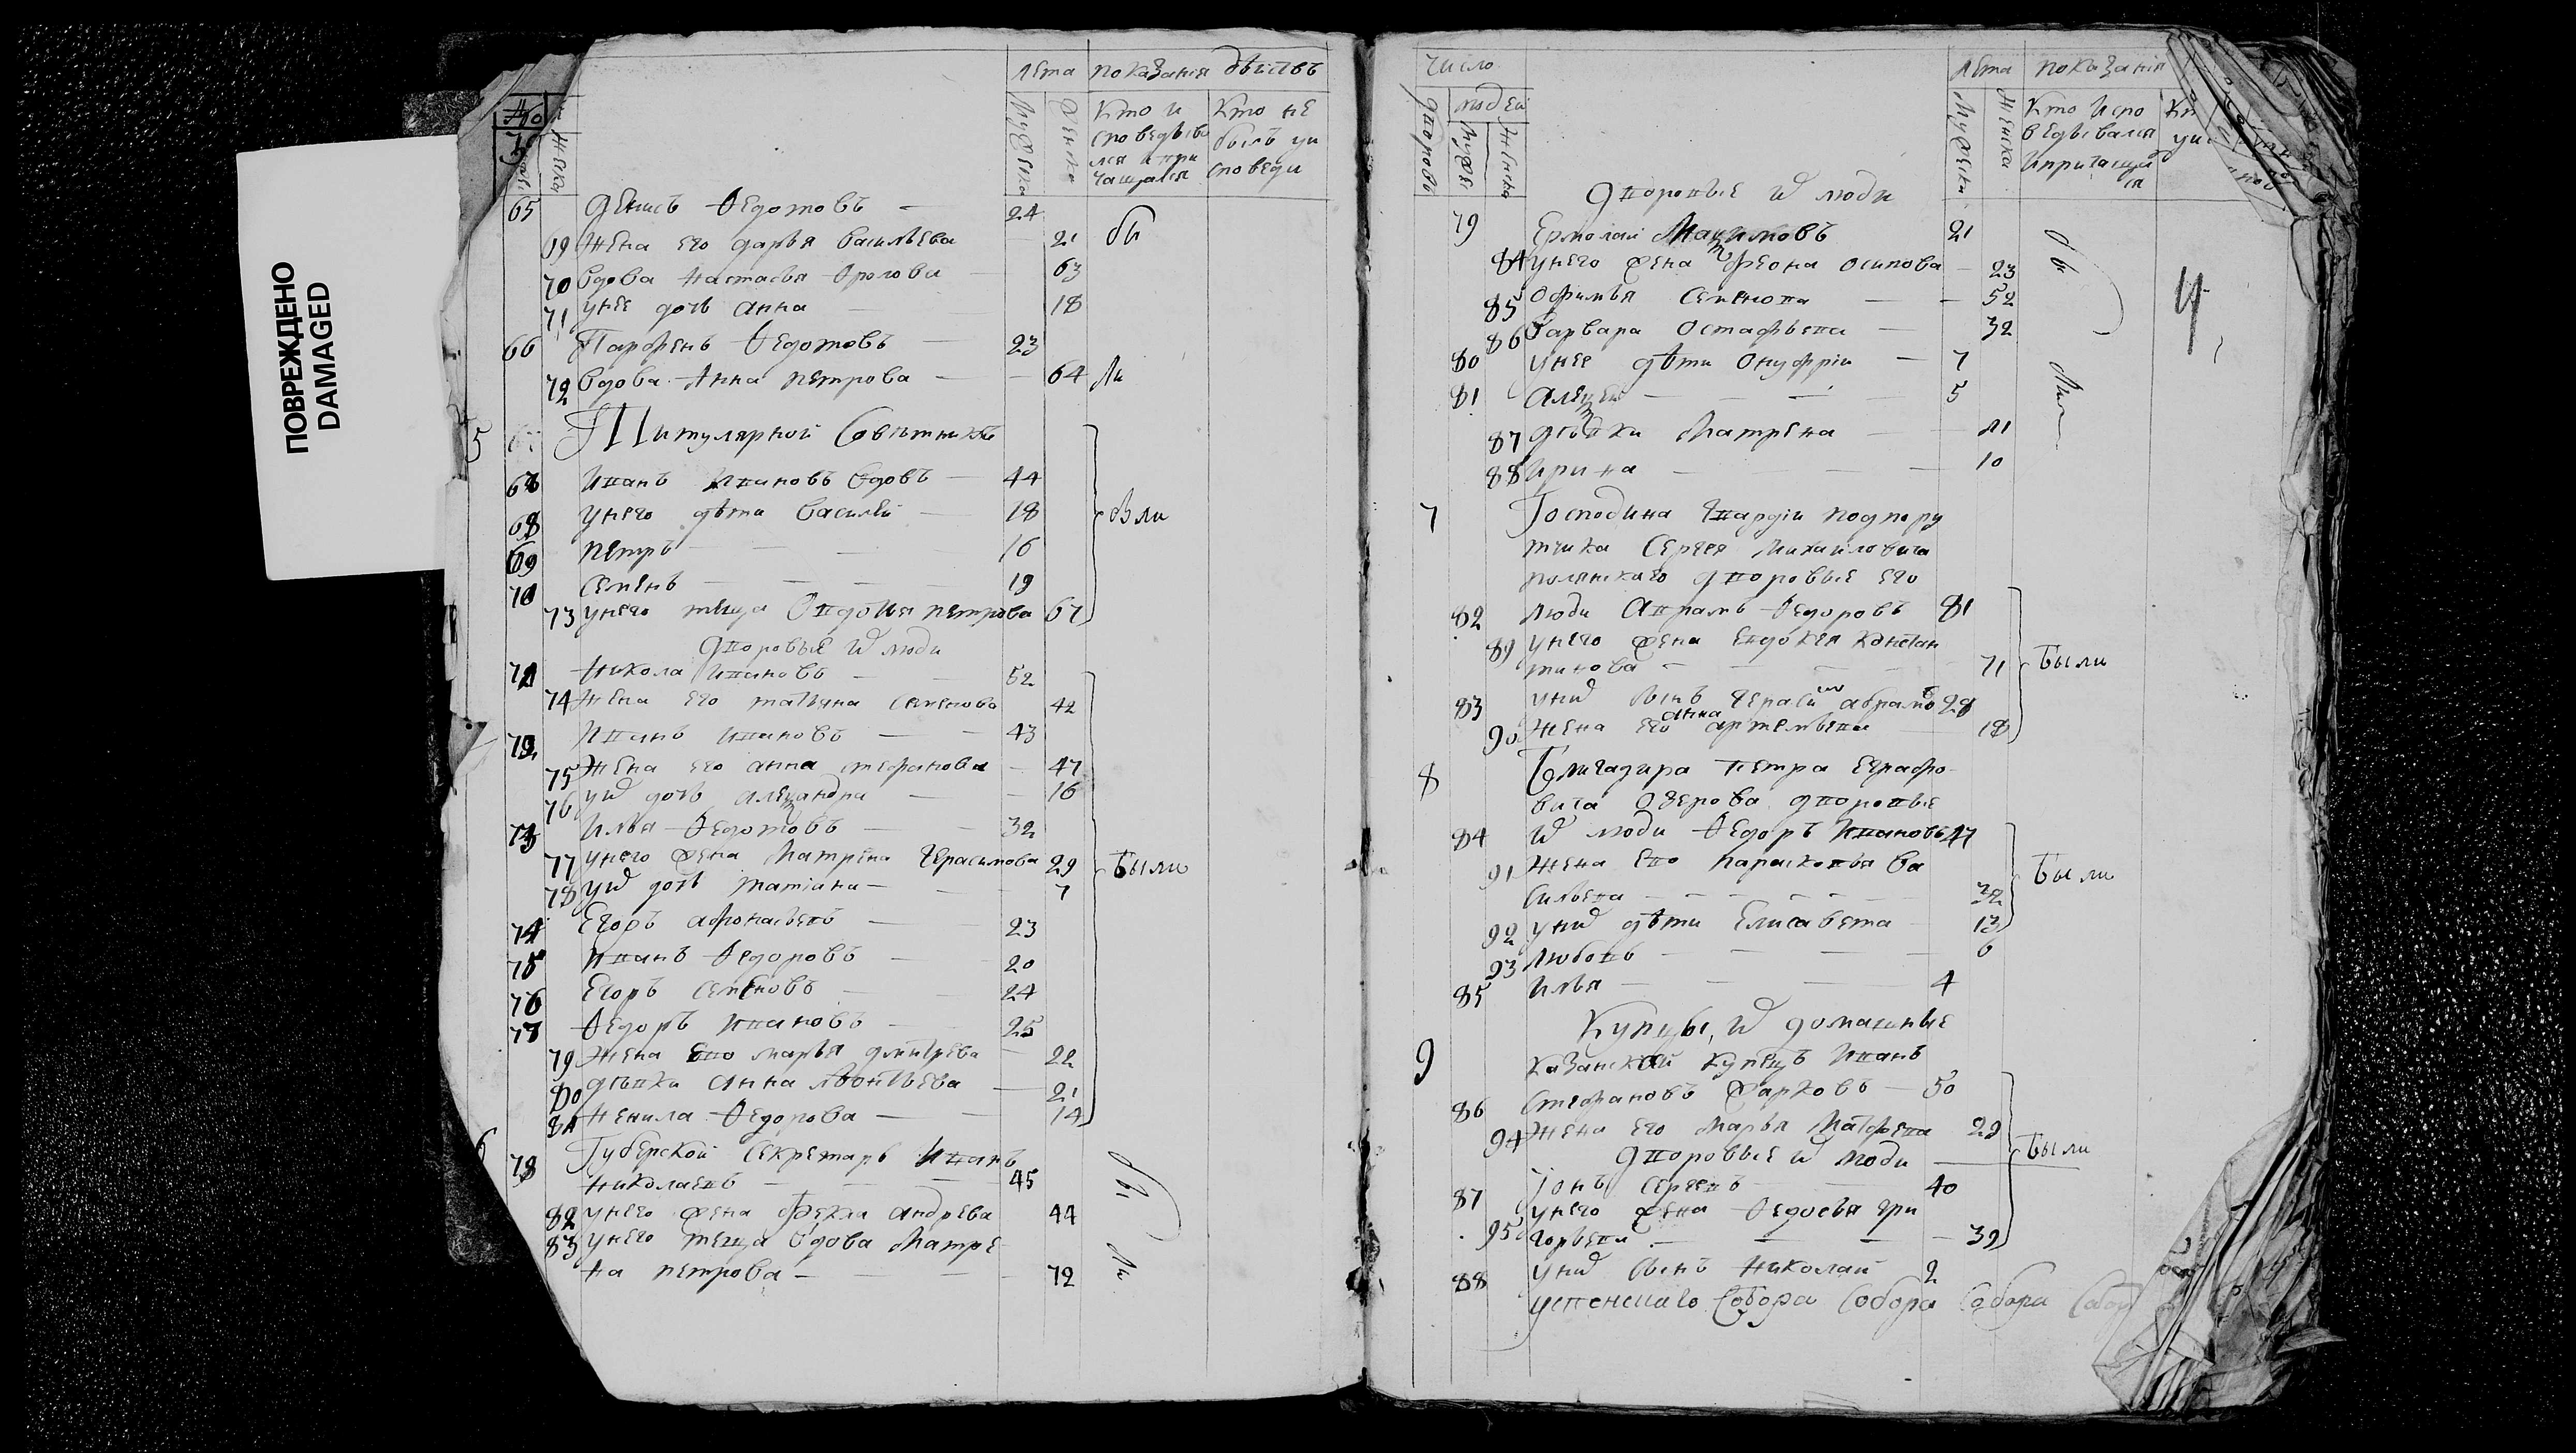 ПОВРЕЖДЕНО
DAMAGED
лета показания бытъ
Мужеска Женска Кто и сповѣдыва лся и при чащался Кто не былъ ущ сповѣди
65 Денисъ Ѳедотовъ — 24
69 Жена его дарья васильева 21 бы
70 вдова Настасья Ѳролова 63
71 унее дочь анна 18
66 Парфенъ Ѳедотовъ — 23
72 вдова Анна петрова — 64 ли
5 Титулярной Советникъ
67 Иванъ Ивановъ вдовъ — 44
68 Унего дѣти василей 18 были
69 петръ — 16
70 семенъ — 19
73 унего теща Овдотья петрова 67
дворовые и люди
71 Никола Ивановъ 52
74 Жена его татьяна семенова 42
72 Иванъ ивановъ — 43
75 Жена его анна стефанова — 47
76 уи дочь александра — 16
73 Илья Ѳедотовъ — 32
77 унего жена Матрена Герасимова 29 были
78 уи дочь татиана — 7
74 Егоръ афонасьевъ — 23
75 Иванъ Ѳедоровъ — 20
76 Егоръ семеновъ — 24
77 Ѳедоръ Ивановъ 25
79 Жена ево марья дмитрева — 22
80 дѣвки Анна леонтьева — 21
81 Ненила Ѳедорова — 14
6 78 Губерской секретарь Иванъ
Николаевъ — 45 бы
82 унего жена Фекла андрева 44
83 Унего теща вдова Матре
на петрова — 72 ли
число лета показания
дворовъ людей Мужес Женска Мужеска Женска Кто Испо ведывался Ипричащался
дворовые и люди
79 Ермолай Максимовъ 21 бы
84 унего жена Феона осипова — 23 4
85 офимья семенова — 52
86 Варвара остафьева — 32
80 унее дѣти Онуфрiи — 7 ли
81 Алексеи — 5
87 дѣвки Матрена — 11
88 Ирина — 10
7 Господина Гвардiи подпору
тчика Сергея михаиловича
полянскаго дворовые его
82 люди Аврамъ Ѳедоровъ 81
89 унего жена евдокея констан
тинова — 71 были
83 уни сынъ герасим абрамо 28
90 Жена его анна артемьева 18
8 Бригадира петра еграфо
вича Озерова дворовые
84 и люди Ѳедоръ Ивановъ 47
91 Жена ево парасковья ва
сильева — 32 были
92 уни дѣти Елисавета 13
93 любовь — 6
85 илья — 4
Купцы, и домашные
9 казанской купецъ Иванъ
86 стефановъ Жарковъ — 50
94 Жена его Марья Матфева 29
дворовые и люди — были
87 Iонъ сергеевъ 40
унего жена Ѳедосья гри
95 горьева — 39
88 уни сынъ Николай 2
успенскаго Собора Собора Собора Собор